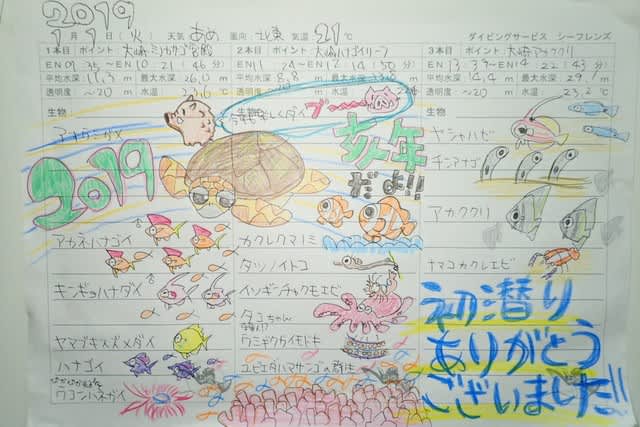 2019
1月1日(火) 天気 あめ 風向: 北東 気温 21℃ ダイビングサービス シーフレンズ
1本目 ポイント 大崎ミノカサゴ宮殿
2本目 ポイント 大崎ハナゴイリーフ
3本目 ポイント 大崎アカククリ
EN 09:35~EN 10:21 (46分)
EN 11:24~EN 12:14 (50分)
EN 13:39~EN 14:22 (43分)
平均水深 最大水深 26.0m
平均水深 8.8m 最大水深
平均水深 14.4m 最大水深 29.7m
透明度 ~20m 水温
透明度 ~20m 水温
透明度 ~20m 水温 23.2℃
生物
生物
生物
アオウミガメ
2019
亥年
だよ!!
アカネハナゴイ
キンギョハナダイ
ヤマブキスズメダイ
ハナゴイ
ウコンハネガイ
カクレクマノミ
タツノイトコ
イソギンチャクモエビ
タコちゃん
ウミキクガイモドキ
ユビエダハマサンゴの群生
ヤシャハゼ
チンアナゴ
アカククリ
ナマコカクレエビ
初潜り
ありがとう
ございました!!